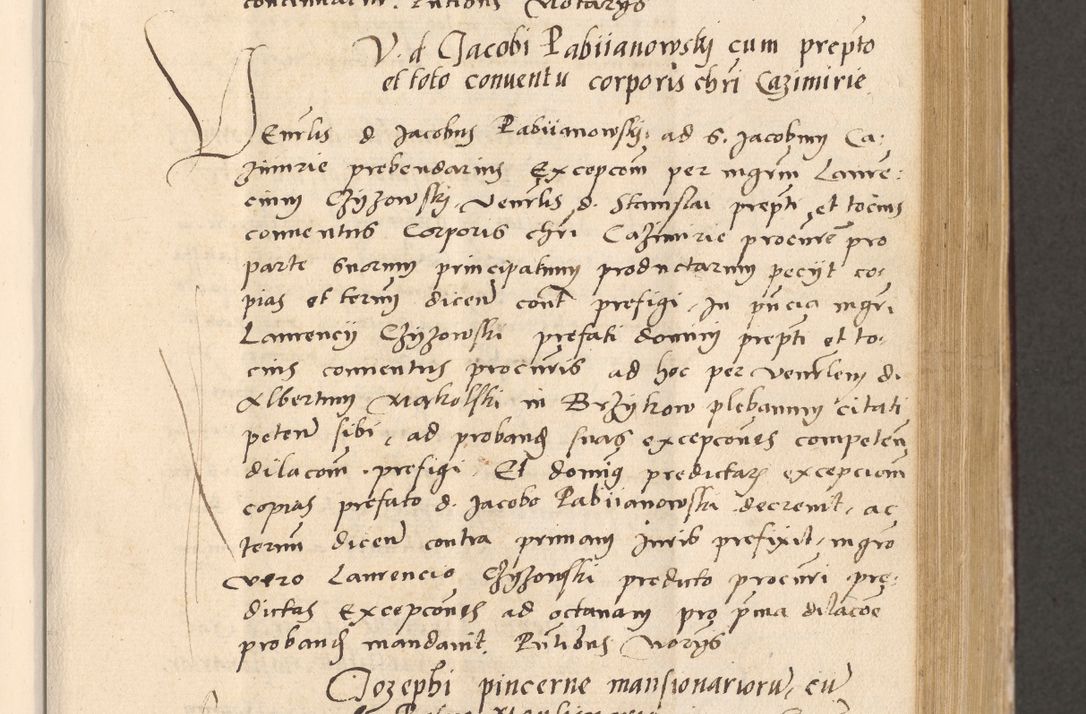 V. d Jacobi Pabiianowskj cum prepto
et toto conventu corporis chri Cazimirie
Venrlis d. Jacobus Pabiianowskj ad S. Jacobum Ca-
zimirie prebendarius Excepcom per mgrm Lauren-
cium Czyzowskj, Venrlis d. Stanislai prepti et tocius
conventus Corporis chri Cazimirie procurem pro
parte suorum principalium productarum peciit co-
pias et termm dicend contr prefigi. In pncia mgri
Laurencij Czyzowski prefati domini prepti et to-
cius conventus procuris ad hoc per Venrlem d.
Albertum Makolski in Brzykow plebanum citati
peten sibi, ad proband suas excepcones competen
dilacom prefigi. Et dominus predictar excepcionum
copias prefato d. Jacobo Pabiianowski decrevit, ac
termm dicend contra primam Juris prefixit, mgro
vero Laurencio Czyzowski predicto procuri pre-
dictas Excepcones ad octavam pro prima dilacoe
proband mandavit. Rutibus Norys
Jozephi pincerne mansionarioru, cu